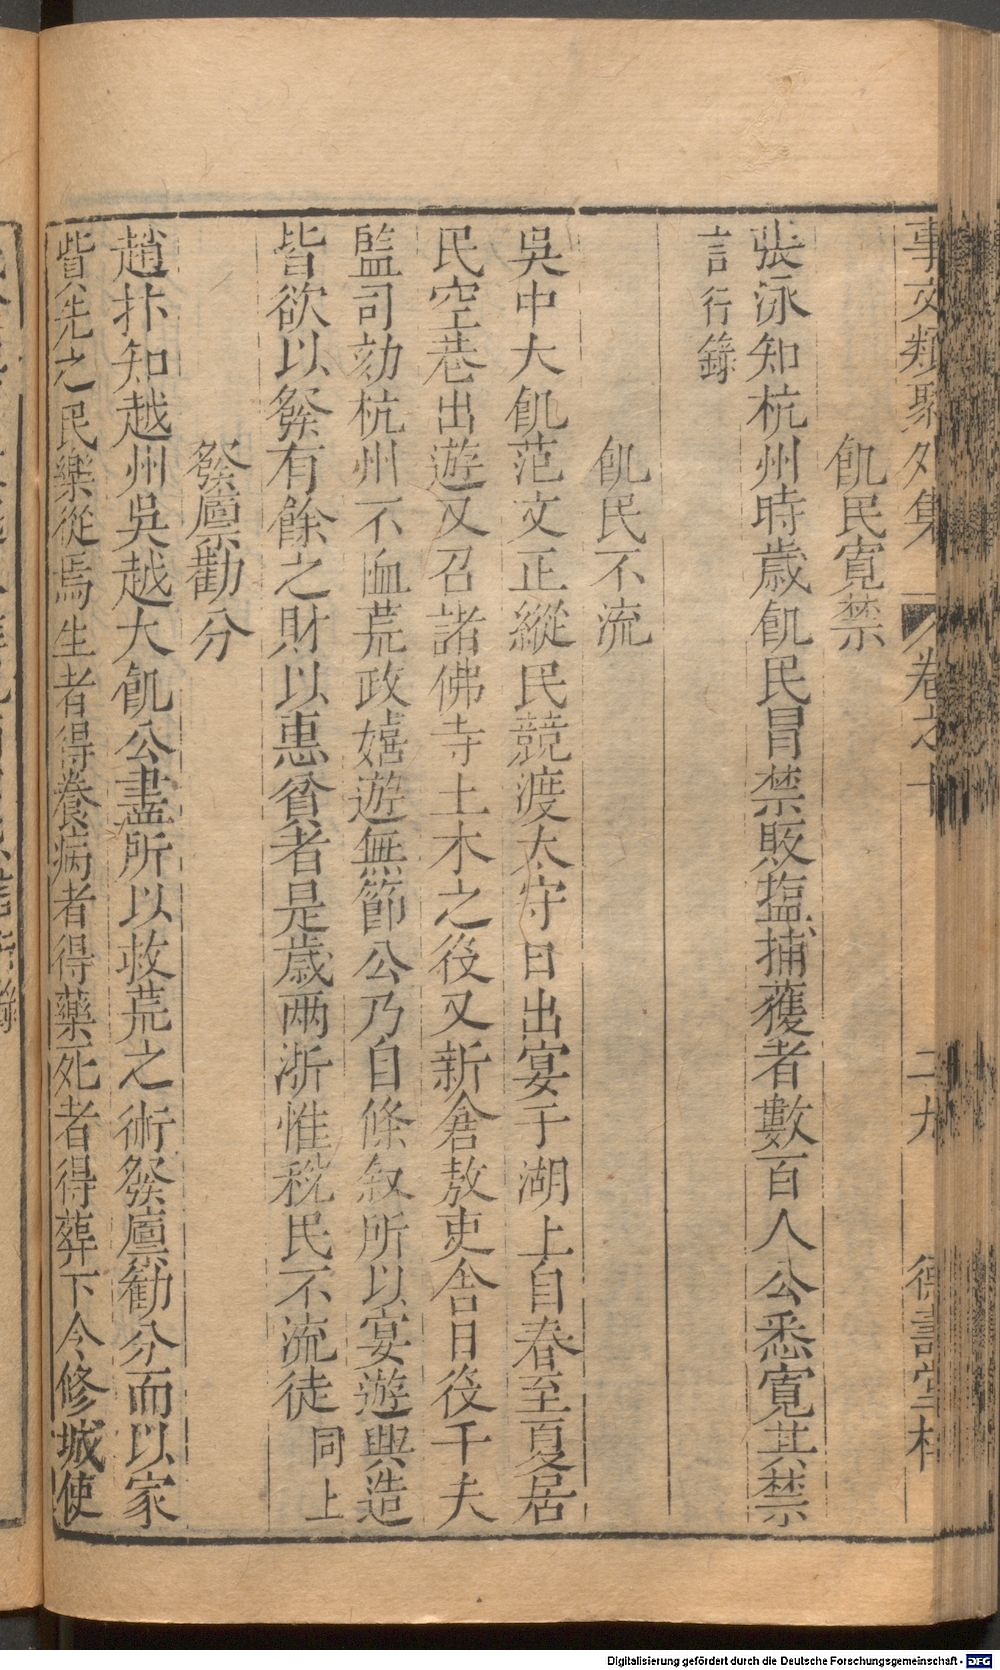 事文類聚外集 卷之十 二九 德壽堂梓
飢民寬禁
張泳知杭州時歲飢民冐禁販塩捕獲者數百人公悉寬其禁
言行錄
飢民不流
吳中大飢范文正縱民競渡太守日出宴于湖上自春至夏居
民空巷出遊又召諸佛寺土木之役又新倉敖吏舍日役千夫
監司劾杭州不恤荒政嬉遊無節公乃自條叙所以宴遊興造
皆欲以發有餘之財以惠貧者是歲兩浙惟稅民不流徒 同上
發廪勸分
趙抃知越州吳越大飢公盡所以救荒之術發廪勸分而以家
貲先之民樂從焉生者得養病者得藥死者得葬下令修城使
Digitalisierung gefördert durch die Deutsche Forschungsgemeinschaft - DFG